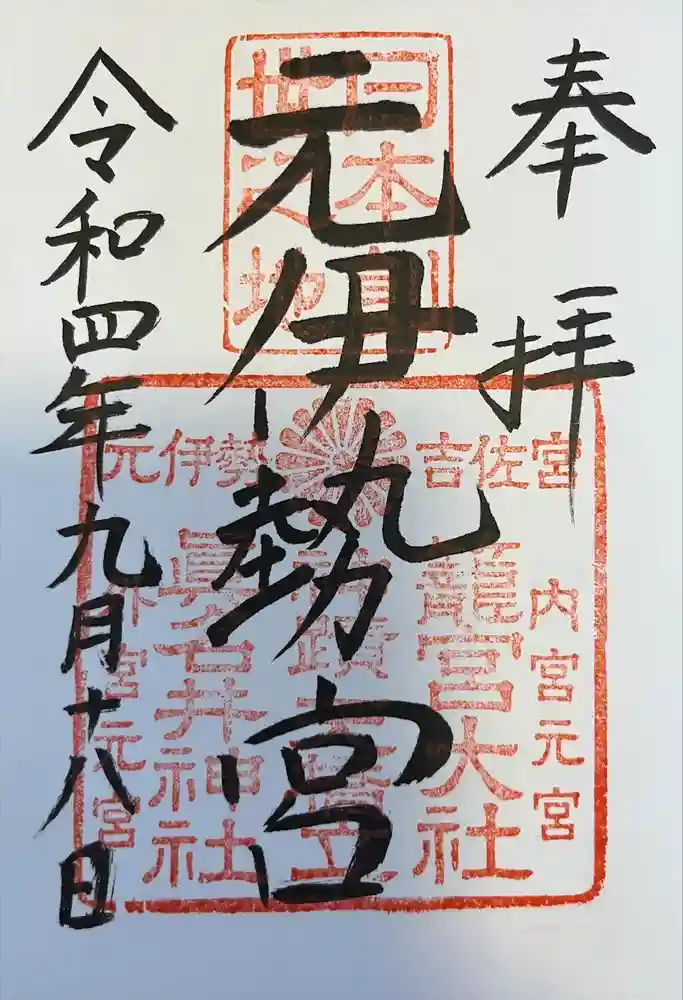 奉拝
元伊勢宮
令和四年九月十八日
日本創
世之地
吉佐宮
元伊勢
内宮元宮
籠宮大社
眞名井神社
外宮元宮